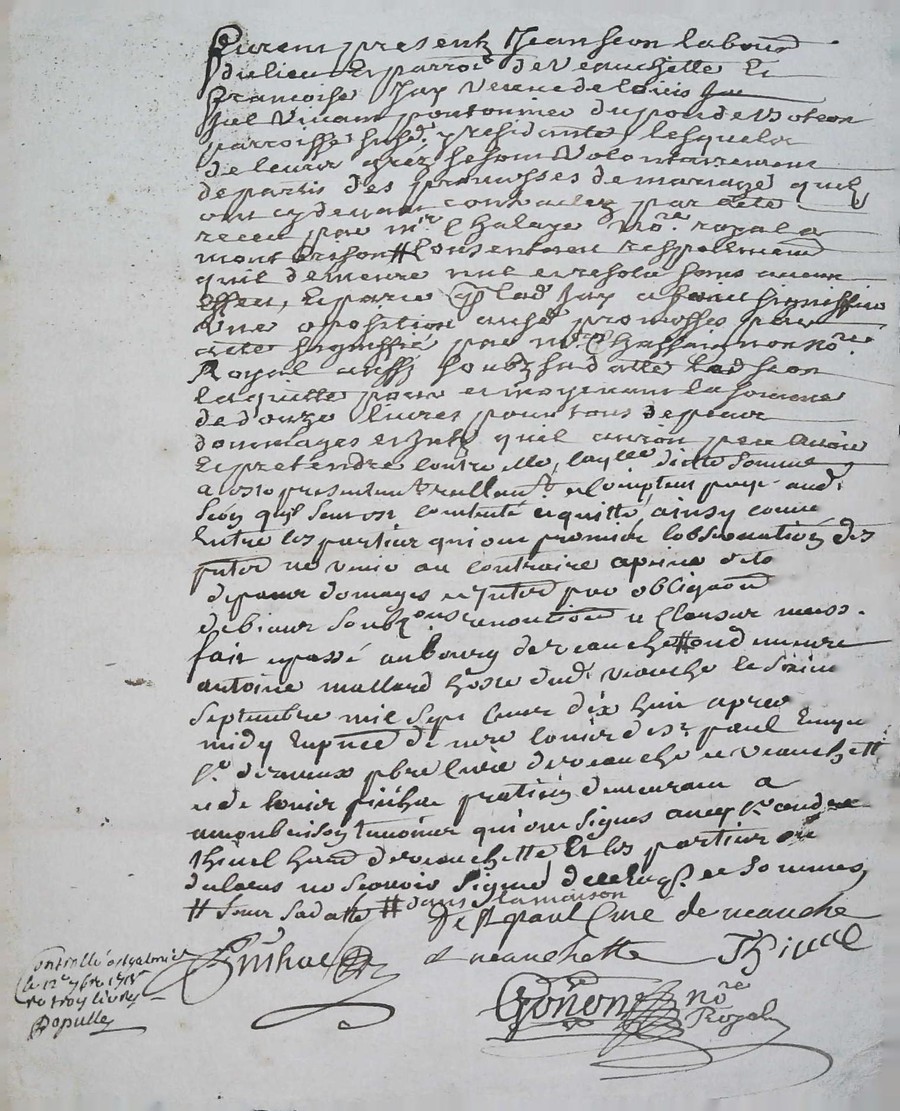 Furent presentz Jean seon labour
dulieu et parroi. de Veauchette et
francoise Jay veuve de louis
 vivant pontonnier du por de
parroisse susd. y residante lesquelz
de leurs grez se sont volontairement
departis des promesses de mariage quilz
ont cy devant contractez par acte
receu par mr. Chalaye no.re royal a
montbrison # Consentent respectivement
quil demeure nul et resolu sans aucun
effect, et parce q lad Jay a fait signiffier
une oposition ausd. promesses par
acte signiffié par mr no.re
Royal aussy soubz sadatte led seon
la quitte pour et moyenant la somme
de douze livres pour tous depens
dommages et jntz quil auroit peu avoir
et pretendre contre elle, laqlle ditte somme
a este presentemt reellemt. et comptant payé aud.
seon qui sen est contenté et quitte, ainsy convenu
Entre les parties qui ont promis lobservation des
pntes ne venir au contraire a peine de to
depens domages et jntz par obligaon
de biens soubz ons renontiaon et clauses
fait et passé au bourg de veauchette
antoine mallard hoste dud. veauche le
Septembre mil sept cent dix huit apres
midy En pnce de mre louis de st paul
sr. de vaux pbre curé de veauche et veauchette
et de louis praticien demeurant a
montbrison temoins qui ont signes avec sr.
thivel de veauchette Et les parties
declarés ne scavoir signé de ce enqs. et sommes
# sous sadatte # dans la maison
De St paul Curé de veauche
et veauchette Thivel
Gonon no.re
Royal
Controllé a st galmier
le 12e 7bre 1718
re troy livres
Populle